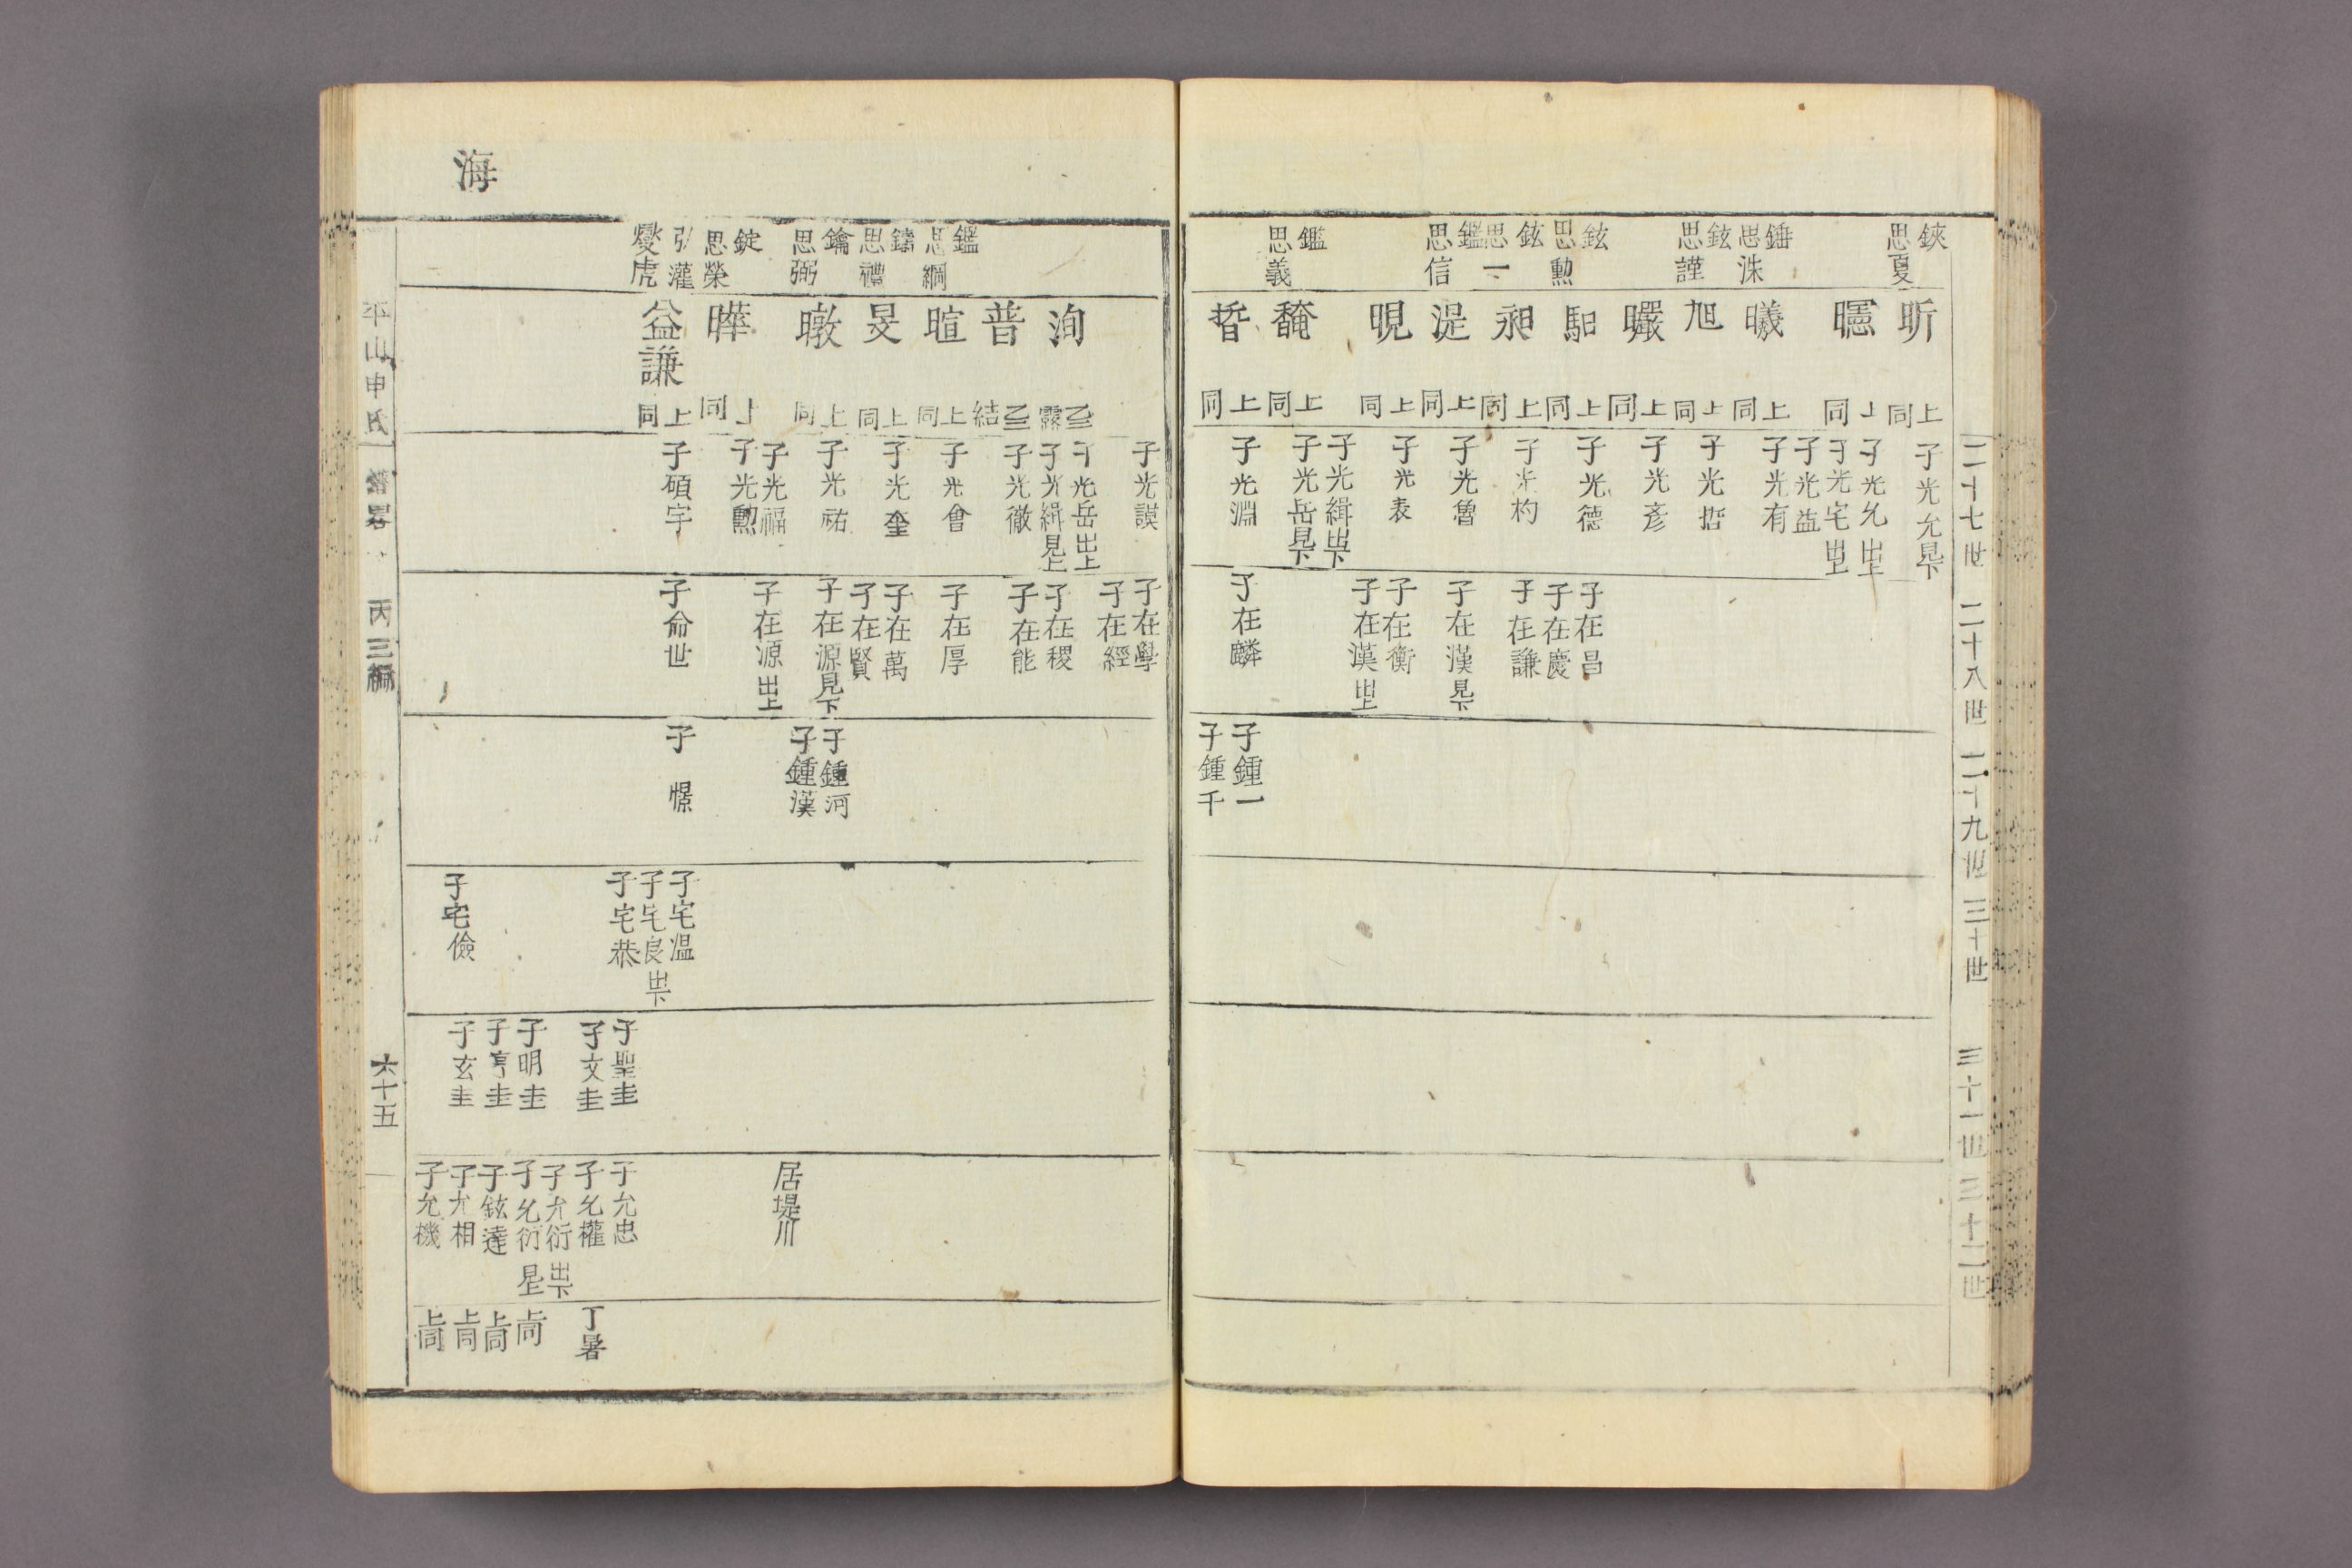 二十七世
二十八世
二十九世
三十世
三十一世
三十二世
鋏
思夏
錘
思洙
鉉
思謹
鉉
思勳
鉉
思一
鑑
思信
鑑
思義
昕
上同
上同
曦
上同
旭
上同
曮
上同
馹
上同
昶
上同
湜
上同
晛
上同
馣
上同
晢
上同
子光允見下
子光允出上
子光宅出上
子光益
子光有
子光哲
子光彥
子光德
子光杓
子光魯
子光表
子光緝出下
子光岳見下
子光淵
子在昌
子在慶
子在謙
子在漢見下
子在衡
子在漢出上
子在麟
子鍾一
子鍾千
海
鑑
思綱
鑄
思禮
鑰
思弼
錠
思榮
弘灌
燮虎
洵
乙三霽
普
乙三結
暄
上同
旻
上同
暾
上同
曄
上同
益謙
上同
子光謨
子光岳出上
子光緝見上
子光徹
子光會
子光奎
子光祐
子光福
子光勳
子碩宇
子在學
子在經
子在稷
子在能
子在厚
子在萬
子在賢
子在源見下
子在源出上
子命世
子鍾河
子鍾漢
子憬
子宅溫
子宅良出下
子宅恭
子宅儉
子聖圭
子文圭
子明圭
子亨圭
子玄圭
居堤川
子允忠
子允權
子允衍出下
子允衍見上
子鉉達
子允相
子允機
丁暑
上同
上同
上同
上同
平山申氏
譜畧
丙三編
六十五